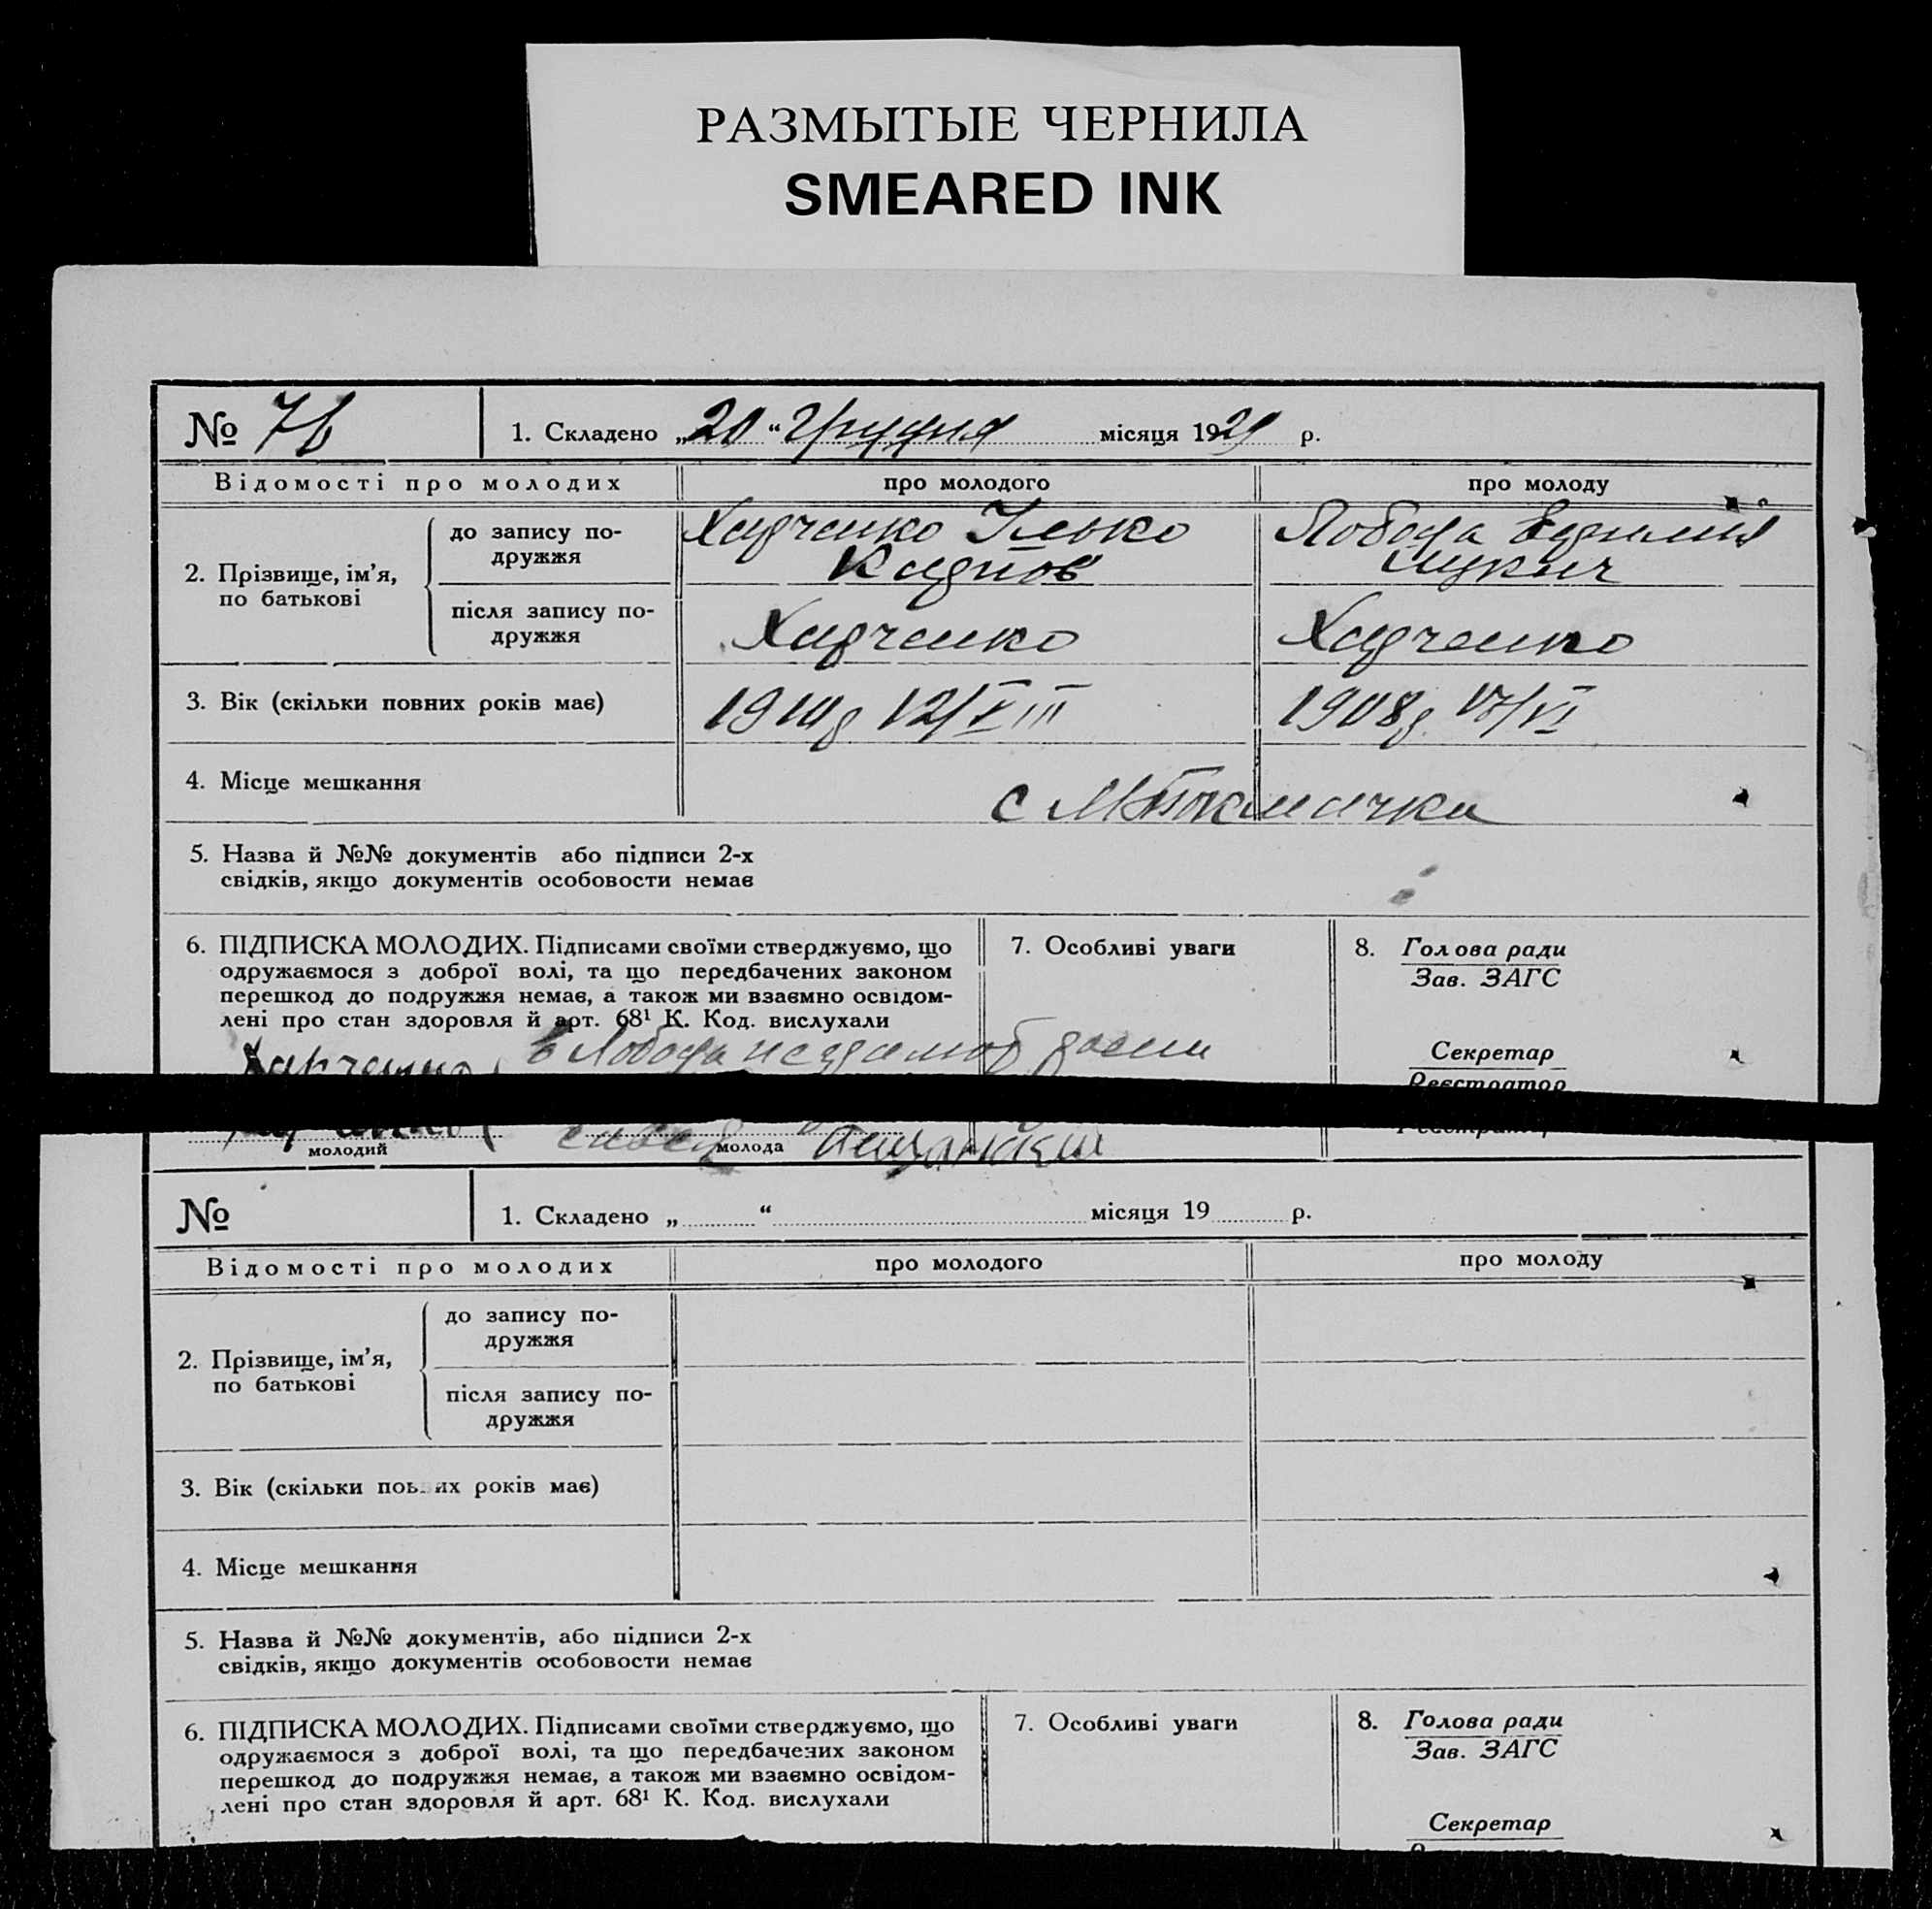 РАЗМЫТЫЕ ЧЕРНИЛА
SMEARED INK
№ 76
1. Складено „20“ Грудня місяця 1929 р.
Відомості про молодих
про молодого
про молоду
2. Прізвище, ім’я,
по батькові
до запису по-
дружжя
Харченко Ілько
Карпов
Лобода
Лукич
після запису по-
дружжя
Харченко
Харченко
3. Вік (скільки повних років має)
1910р 12/VIII
1908р.
4. Місце мешкання
с М Токмачка
5. Назва й №№ документів або підписи 2-х
свідків, якщо документів особовости немає
6. ПІДПИСКА МОЛОДИХ. Підписами своїми стверджуємо, що
одружаємося з доброї волі, та що передбачених законом
перешкод до подружжя немає, а також ми взаємно освідом-
лені про стан здоровля й арт. 68¹ К. Код. вислухали
7. Особливі уваги
8. Голова ради
Зав. ЗАГС
Секретар
Реєстратор
Харченко
Лобода
молодий
молода
№
1. Складено „ “ місяця 19 р.
Відомості про молодих
про молодого
про молоду
2. Прізвище, ім’я,
по батькові
до запису по-
дружжя
після запису по-
дружжя
3. Вік (скільки повних років має)
4. Місце мешкання
5. Назва й №№ документів, або підписи 2-х
свідків, якщо документів особовости немає
6. ПІДПИСКА МОЛОДИХ. Підписами своїми стверджуємо, що
одружаємося з доброї волі, та що передбачених законом
перешкод до подружжя немає, а також ми взаємно освідом-
лені про стан здоровля й арт. 68¹ К. Код. вислухали
7. Особливі уваги
8. Голова ради
Зав. ЗАГС
Секретар